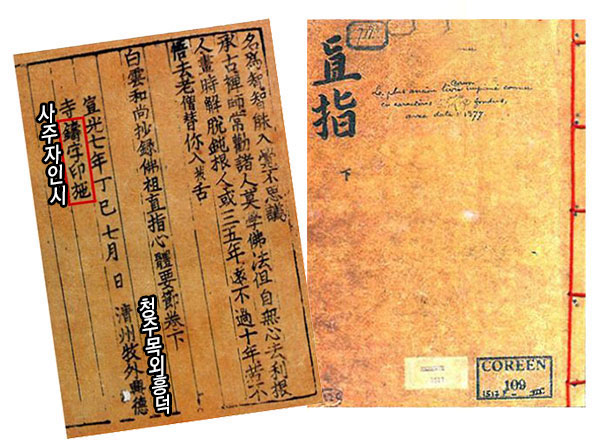 名爲智智能入堂不思議
承古禪師常勸諸人莫學佛法但自無心法利根
人畫時解脫鈍根人或三五年遠不過十年若不
悟去老僧替你入拔舌
白雲和尙抄錄佛祖直指心體要節卷下
宣光七年丁巳七月 日 淸州牧外興德
寺鑄字印施
청주목외흥덕
사주자인시
直指
下
Coréen
Le plus ancien livre imprimé connu
en caractères fondus,
avec date: 1377.
COREEN
109